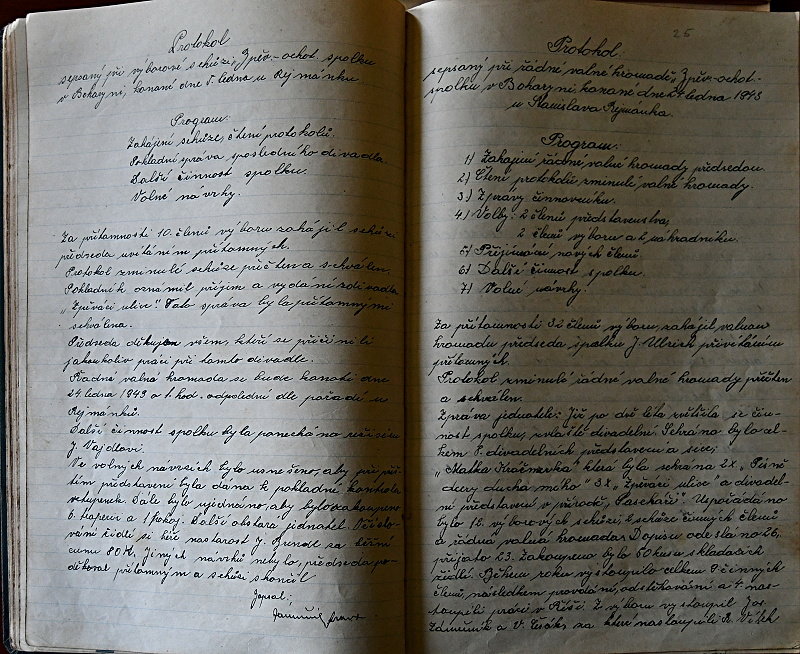 Protokol
sepsaný při výborové schůzi, Zpěv.-ochot. spolku
v Boharyni, konané dne 5. ledna, u Rejmánku
Program:
Zahájení schůze, čtení protokolů.
Pokladní zpráva z posledního divadla.
Další činnost spolku.
Volné návrhy.
Za přítomnosti 10. členů výboru zahájil schůzi
předseda uvítáním přítomných.
Protokol z minulé schůze přečten a schválen.
Pokladník oznámil příjem a vydání z divadla
„Zpěváci ulice" Tato zpráva byla přítomnými
schválena.
Předseda děkuje všem, kteří se přičinili
jakoukoliv prací při tomto divadle.
Řádná valná hromada se bude konati dne
24. ledna 1943 o 1. hod. odpolední dle pořadí u
Rejmánků.
Další činnost spolku byla ponechána režiséru
J. Vajdlovi.
Ve volných návrzích bylo usneseno, aby při příš-
tím představení byla dána k pokladně kontrola
vstupenek. Dále bylo ujednáno, aby bylo zakoupeno
a 1 pokoj. Další obstará jednatel.
židlí si bře nastarost J. Brendl za
cenu 80 K. Jiných návrhů nebylo, předseda po-
děkoval přítomným a schůzi skončil.
Zapsal:
25
Protokol
sepsaný při řádné valné hromadě, Zpěv.-ochot.-
spolku v Boharyni, konané dne 24. ledna 1943
u Stanislava Rejmánka.
Program:
1) Zahájení řádné valné hromady předsedou.
2) Čtení protokolů z minulé valné hromady.
3) Zprávy činovníku.
4) Volby: 2 členů představenstva,
2 členů výboru a 2 náhradníku.
5) Přijímání nových členů.
6) Další činnost spolku.
7) Volné návrhy.
Za přítomnosti 32 členů výboru, zahájil valnou
hromadu předseda spolku J. Ulrich přivítáním
přítomných.
Protokol z minulé řádné valné hromady přečten
a schválen.
Zpráva jednatele: Již po dvě léta zvětšila se čin-
nost spolku, zvláště divadelní. Sehráno bylo cel-
kem 8. divadelních představení a sice:
„Matka Kráčmerka" která byla sehrána 2x, „Písně
dcery ducha mého" 3x, „Zpěváci ulice" a divadel-
ní představení v přírodě, „Pasekáři". Uspořádáno
bylo 12. výborových schůzí, schůze činných členů
a řádná valná hromada. Dopisů odesláno 26,
přijato 23. Zakoupeno bylo 50 kusu skládacích
židlí. Během roku vystoupilo celkem 9 činných
členů, následkem provdání, odstěhování a 4. nas-
toupili práci v Říši. Z výboru vystoupil Jos.
a V. Cesák, za které nastoupili R. Vítek